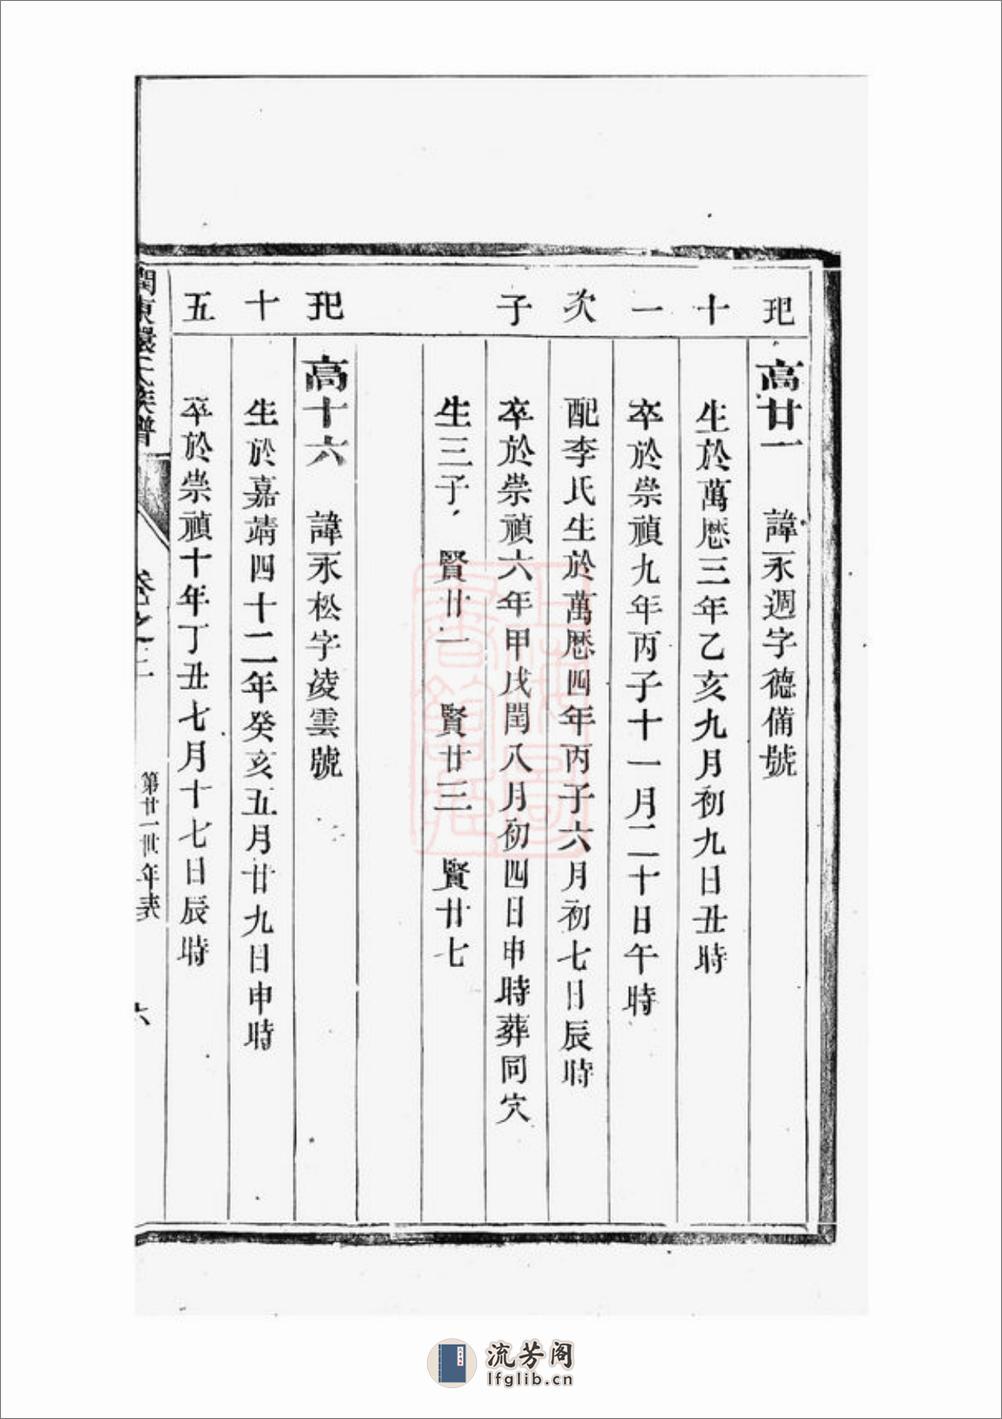 玘十一次子
高廿一 諱永週字德備號
生於萬厯三年乙亥九月初九日丑時
卒於崇禎九年丙子十一月二十日午時
配李氏生於萬厯四年丙子六月初七日辰時
卒於崇禎六年甲戌閏八月初四日申時葬同穴
生三子 賢廿一 賢廿三 賢廿七
玘十五
高十六 諱永松字淩雲號
生於嘉靖四十二年癸亥五月廿九日申時
卒於崇禎十年丁丑七月十七日辰時
氏族譜
卷之
第廿一世年表
六
上海圖書館藏
流芳阁
lfglib.cn